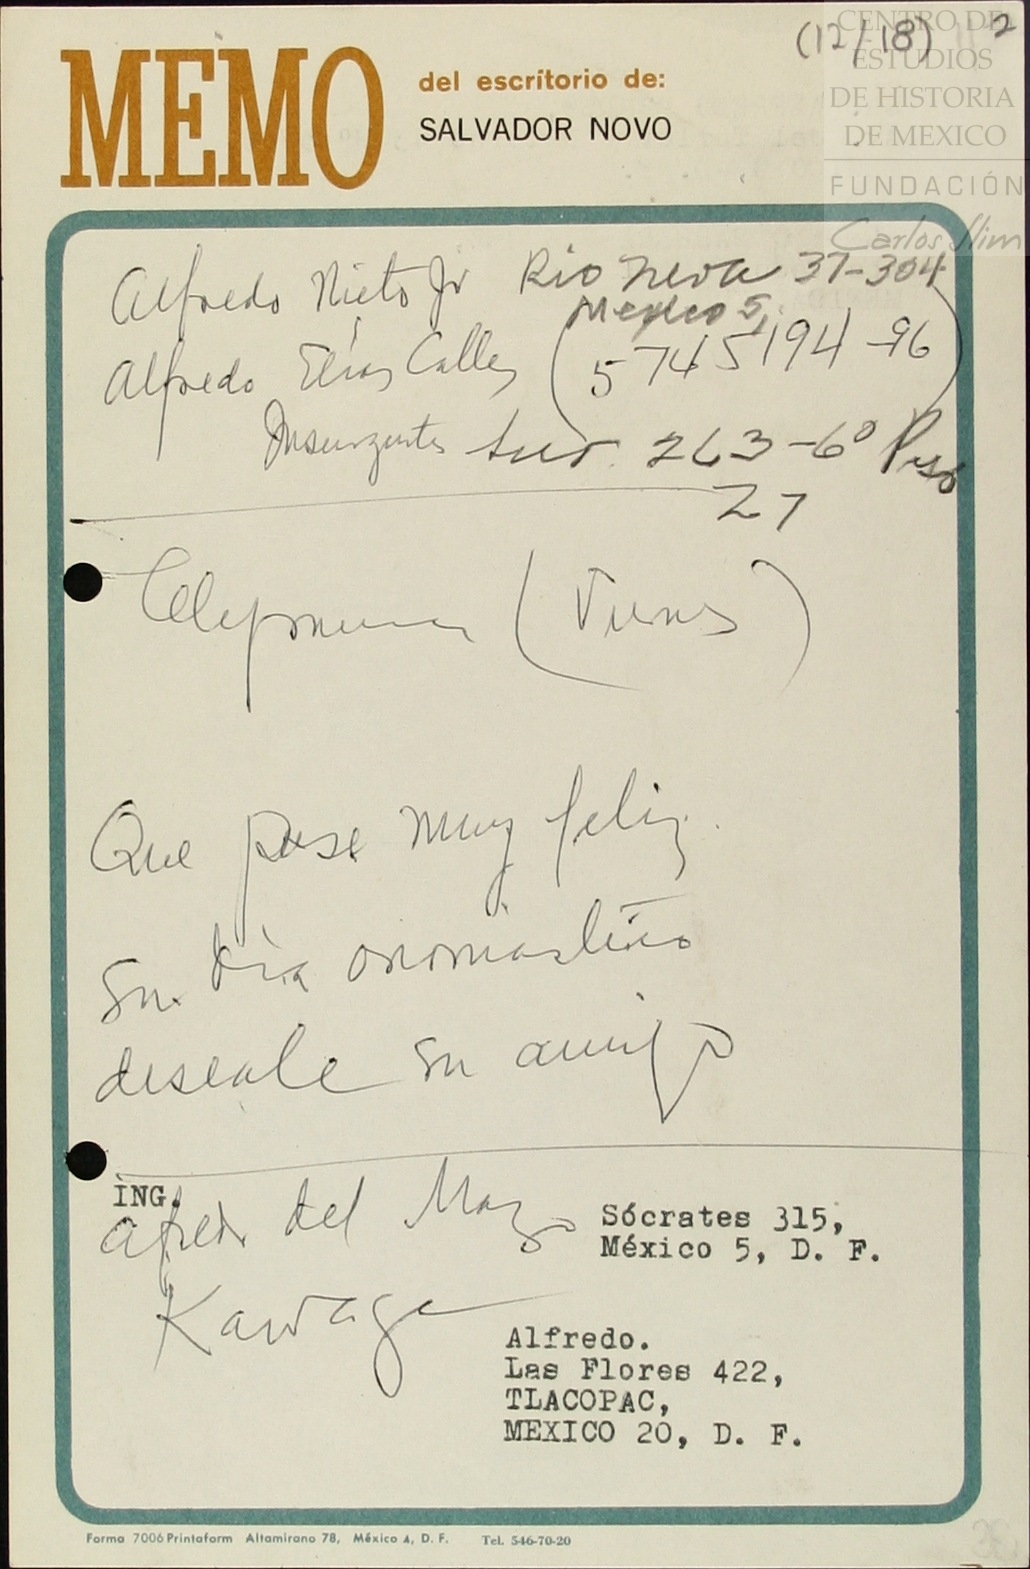 (12/18) 2
CENTRO DE
ESTUDIOS
DE HISTORIA
DE MEXICO
FUNDACIÓN
Carlos Slim
MEMO
del escritorio de:
SALVADOR NOVO
Alfredo Nieto Jr Rio Neva 37-304
Mexico 5,
Alfredo Elías Calles (5 745194-96)
Insurgentes Sur. 263-6º Piso
27
(Viernes)
Que pase muy feliz
su día onomástico
deséale su amigo
ING.
Alfredo del Mazo
Sócrates 315,
México 5, D. F.
Kawage
Alfredo.
Las Flores 422,
TLACOPAC,
MEXICO 20, D. F.
Forma 7006 Printaform Altamirano 78, México 4, D. F. Tel. 546-70-20